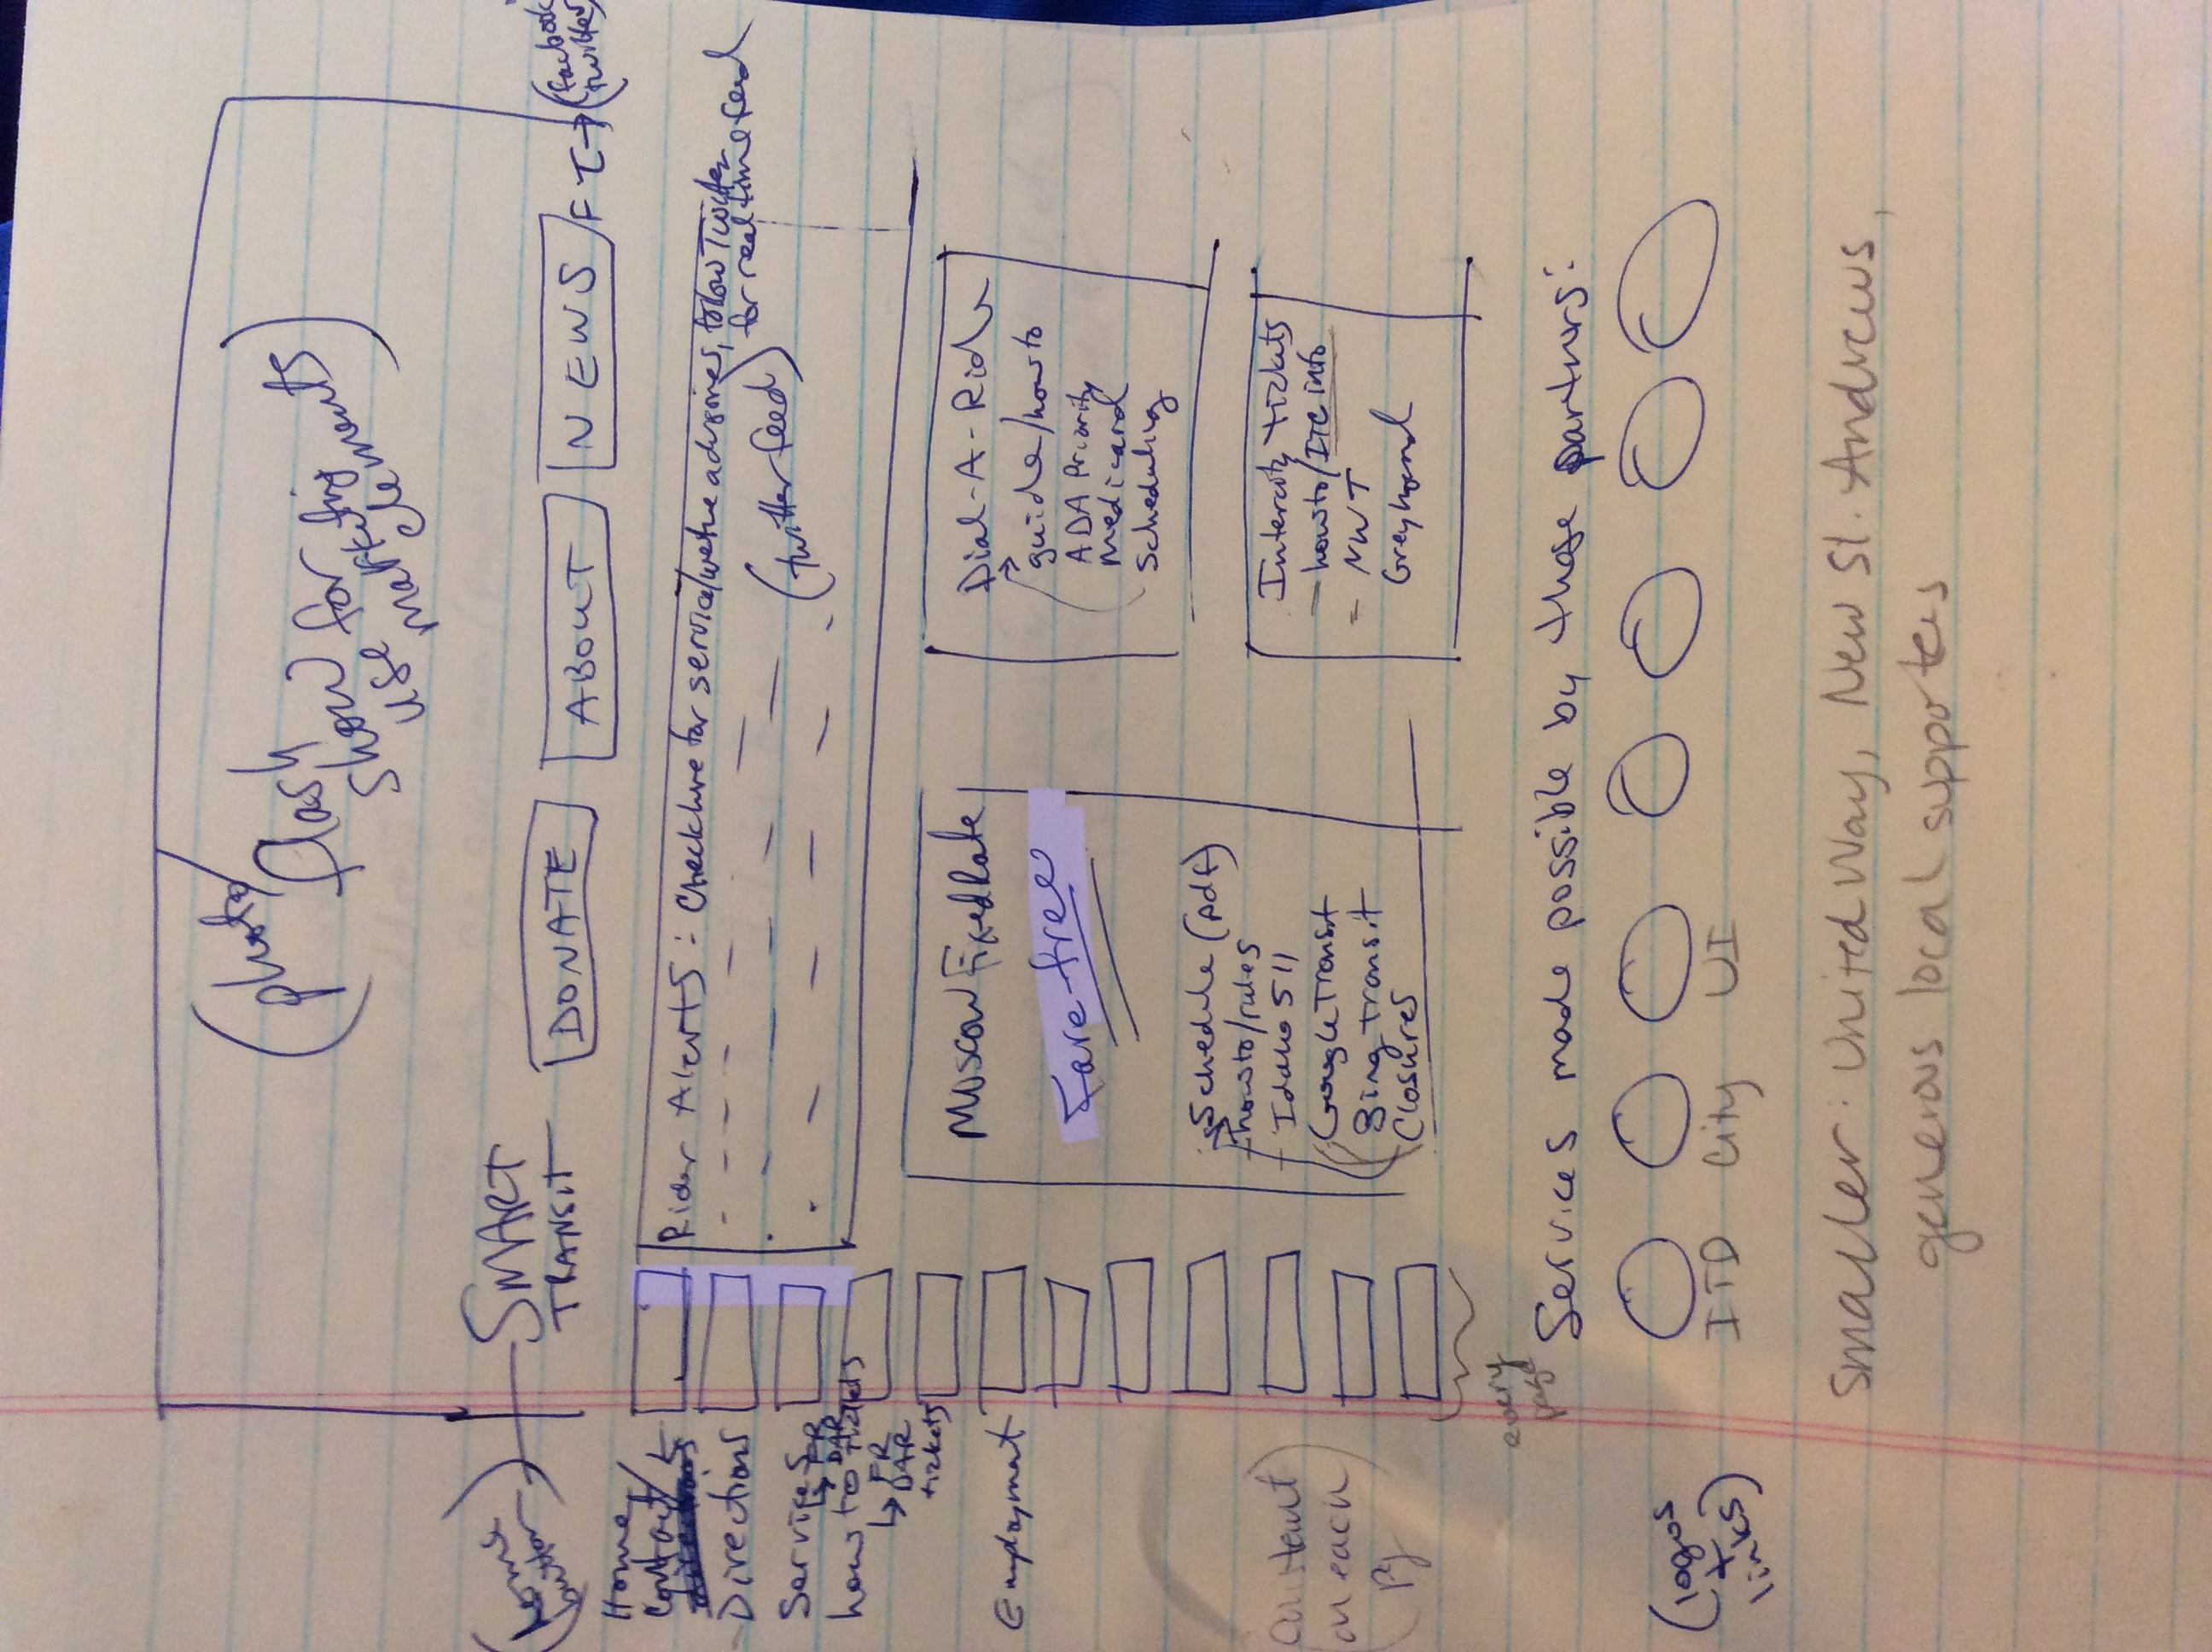 (photo/
flash
show
use for
marketing
elements)
(home
button)
SMART
TRANSIT
DONATE
ABOUT
NEWS
F T → (facbook
twitter
Home
Contact/
Directions
Services
↳ FR
DAR
how to tickets
↳ FR
DAR
tickets
Employment
Rider Alerts: Check here for service/ advisories, follow Twitter
for real time feed
(twitter feed)
Moscow Fixed Rate
Fare-free
Schedule (pdf)
how to/rules
- Idaho 511
Google Transit
Bing Transit
Closures
Dial-A-Ride
guide/how to
ADA Priority
Medicard
Scheduling
Intercity tickets
- how to/ITC info
- NWT
Greyhound
(constant
on each
pg)
every
page
Services made possible by these partners:
(logos
+
links)
ITD City UI
Smaller: United Way, New St. Andrews,
generous local supporters